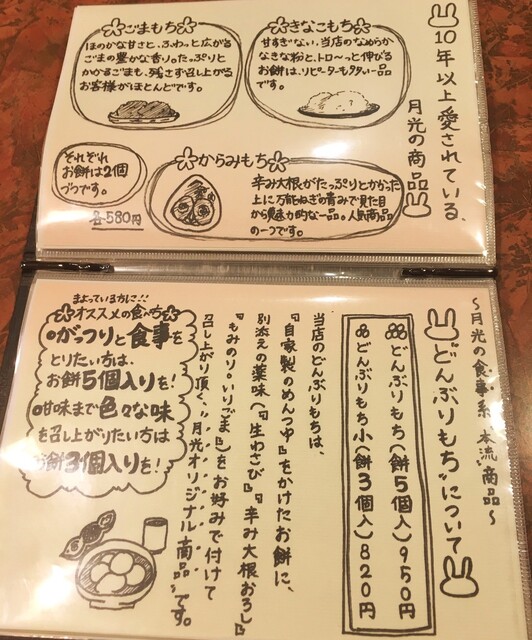 10年以上愛されている、
月光の商品
きなこもち
甘すぎない、当店のなめらか
なきな粉と、トロ～っと伸びる
お餅は、リピーターも多い一品
です。
ごまもち
ほのかな甘さと、ふわっと広がる
ごまの豊かな香り。たっぷりと
かかるごまも、残さず召し上がる
お客様がほとんどです。
からみもち
辛み大根がたっぷりとかかった
上に万能ねぎの青みで見た目
から魅力的な一品。人気商品
の一つです。
それぞれ
お餅は2個
づつです。
各580円
～月光の食事系、本流商品～
"どんぶりもち"について
どんぶりもち(餅5個入)950円
どんぶりもち小(餅3個入)820円
当店のどんぶりもちは、
『自家製のめんつゆ』をかけたお餅に、
別添えの薬味(『生わさび』『辛み大根おろし』
『もみのり・いりごま』)をお好みで付けて
召し上がり頂く、"月光オリジナル商品"です。
まよっている方に!!
オススメの食べ方
がっつりと食事を
とりたい方は、
お餅5個入りを!
甘味まで色々な味
を召し上がりたい方は
お餅3個入りを!